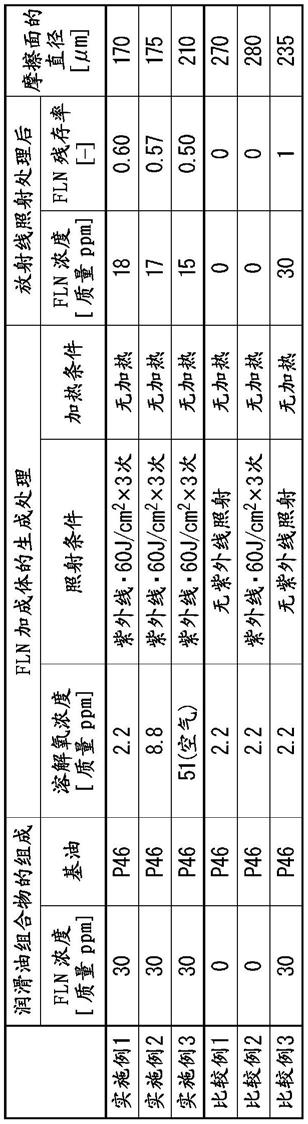 润滑油组合物的组成 FLN 加成体的生成处理 放射线照射处理后 摩擦面的直径[μm]
FLN 浓度[质量 ppm] 基油 溶解氧浓度[质量 ppm] 照射条件 加热条件 FLN 浓度[质量 ppm] FLN 残存率[-]
实施例1 30 P46 2.2 紫外线·60J/cm²×3次 无加热 18 0.60 170
实施例2 30 P46 8.8 紫外线·60J/cm²×3次 无加热 17 0.57 175
实施例3 30 P46 51(空气) 紫外线·60J/cm²×3次 无加热 15 0.50 210
比较例1 0 P46 2.2 无紫外线照射 无加热 0 0 270
比较例2 0 P46 2.2 紫外线·60J/cm²×3次 无加热 0 0 280
比较例3 30 P46 2.2 无紫外线照射 无加热 30 1 235